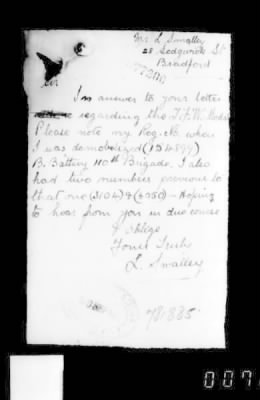 Mr. L Smalley
28 Sedgwick St
Bradford
Sir
In answer to your letter
regarding the T.F.W. Medal
Please note my Reg. No. when
I was demobolized (154899)
B. Battery 110th Brigade. I also
had two numbers previous to
that one (3104) & (2080) - Hoping
to hear from you in due course
& oblige
Yours Truly
L. Smalley
781885
007